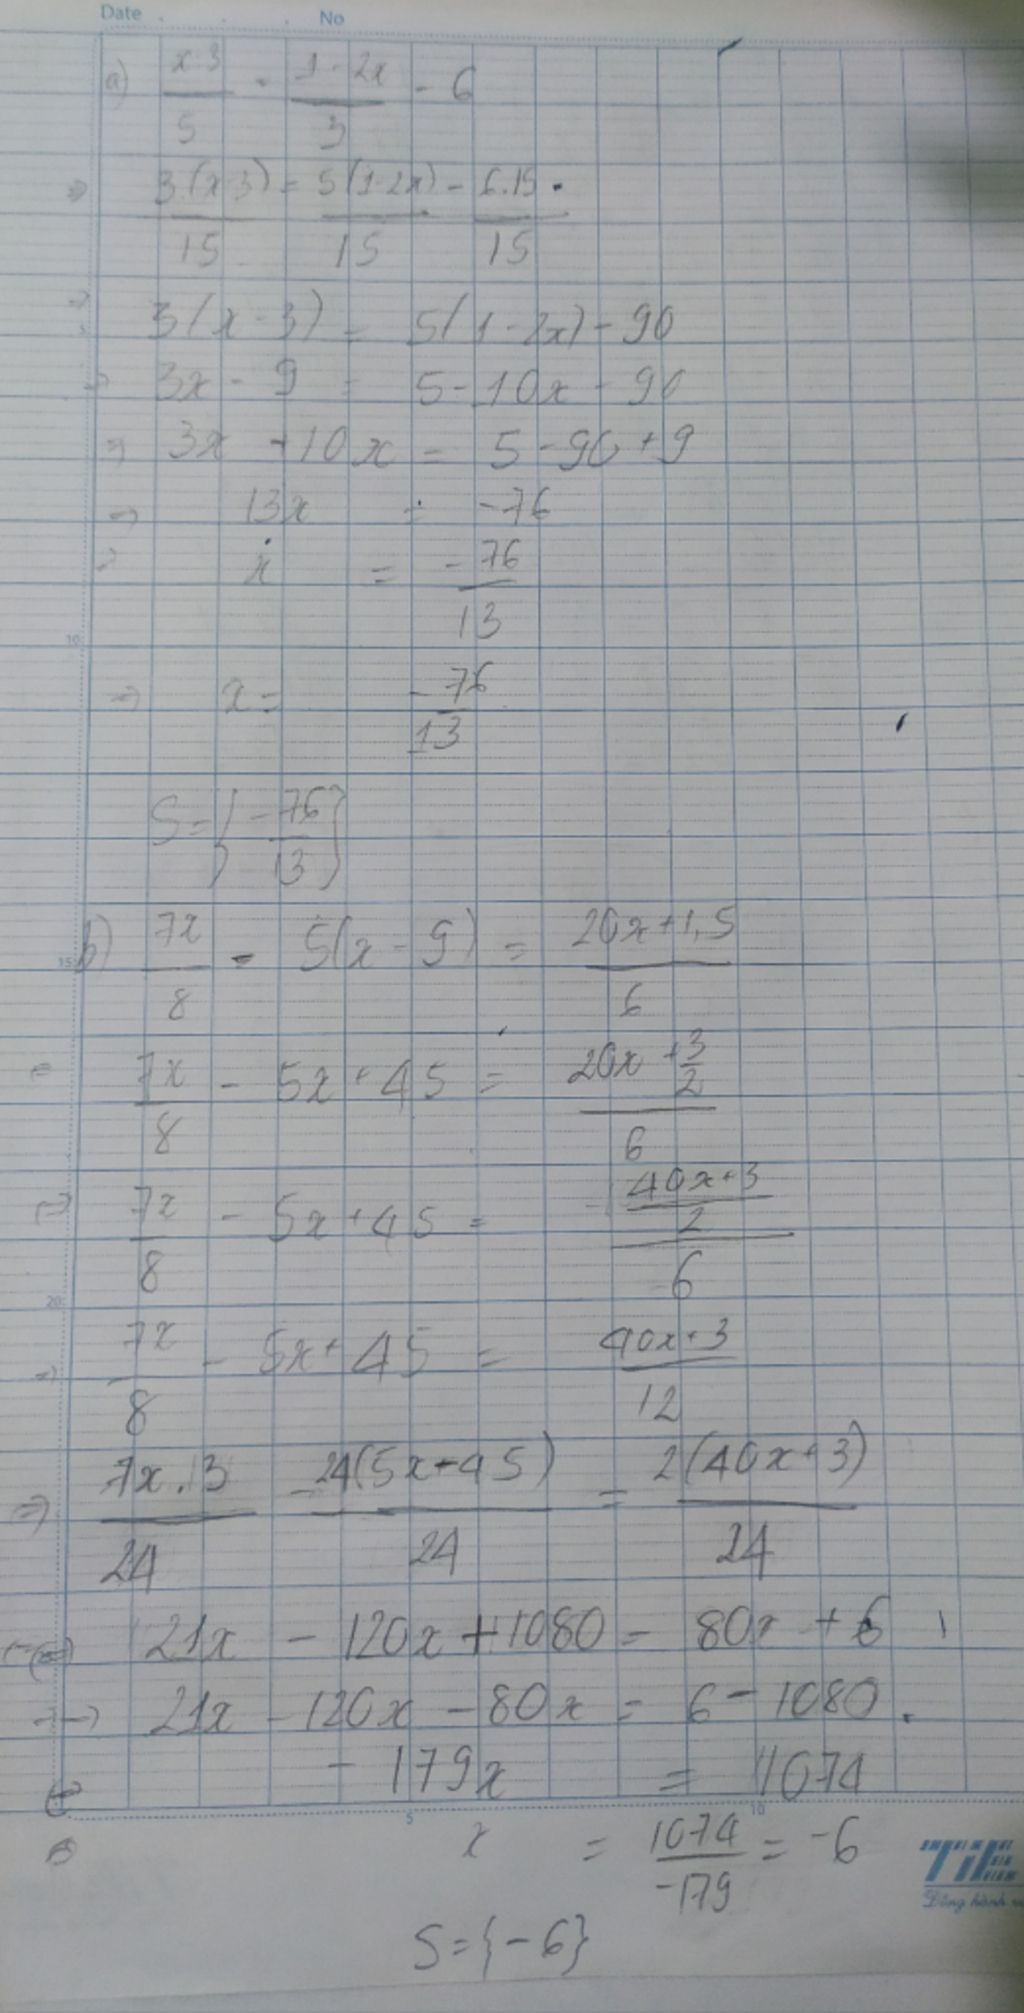 Date No
a) x-3/5 = 1-2x/3 - 6
=> 3.(x-3)/15 = 5(1-2x)/15 - 6.15/15
=> 3(x-3) = 5(1-2x) - 90
=> 3x - 9 = 5 - 10x - 90
=> 3x + 10x = 5 - 90 + 9
=> 13x = -76
=> x = -76/13
10
=> x = -76/13
S = {-76/13}
b) 7x/8 - 5(x-9) = 20x+1,5/6
15
= 7x/8 - 5x+45 = 20x+3/2/6
(=> 7x/8 - 5x+45 = 40x+3/2/6
20
=> 7x/8 - 5x+45 = 40x+3/12
=> 7x.3/24 - 24(5x+45)/24 = 2(40x+3)/24
<=> 21x - 120x+1080 = 80x + 6
=> 21x - 120x - 80x = 6 - 1080
- 179x = 1074
5 10
x = 1074/-179 = -6
S = {-6}